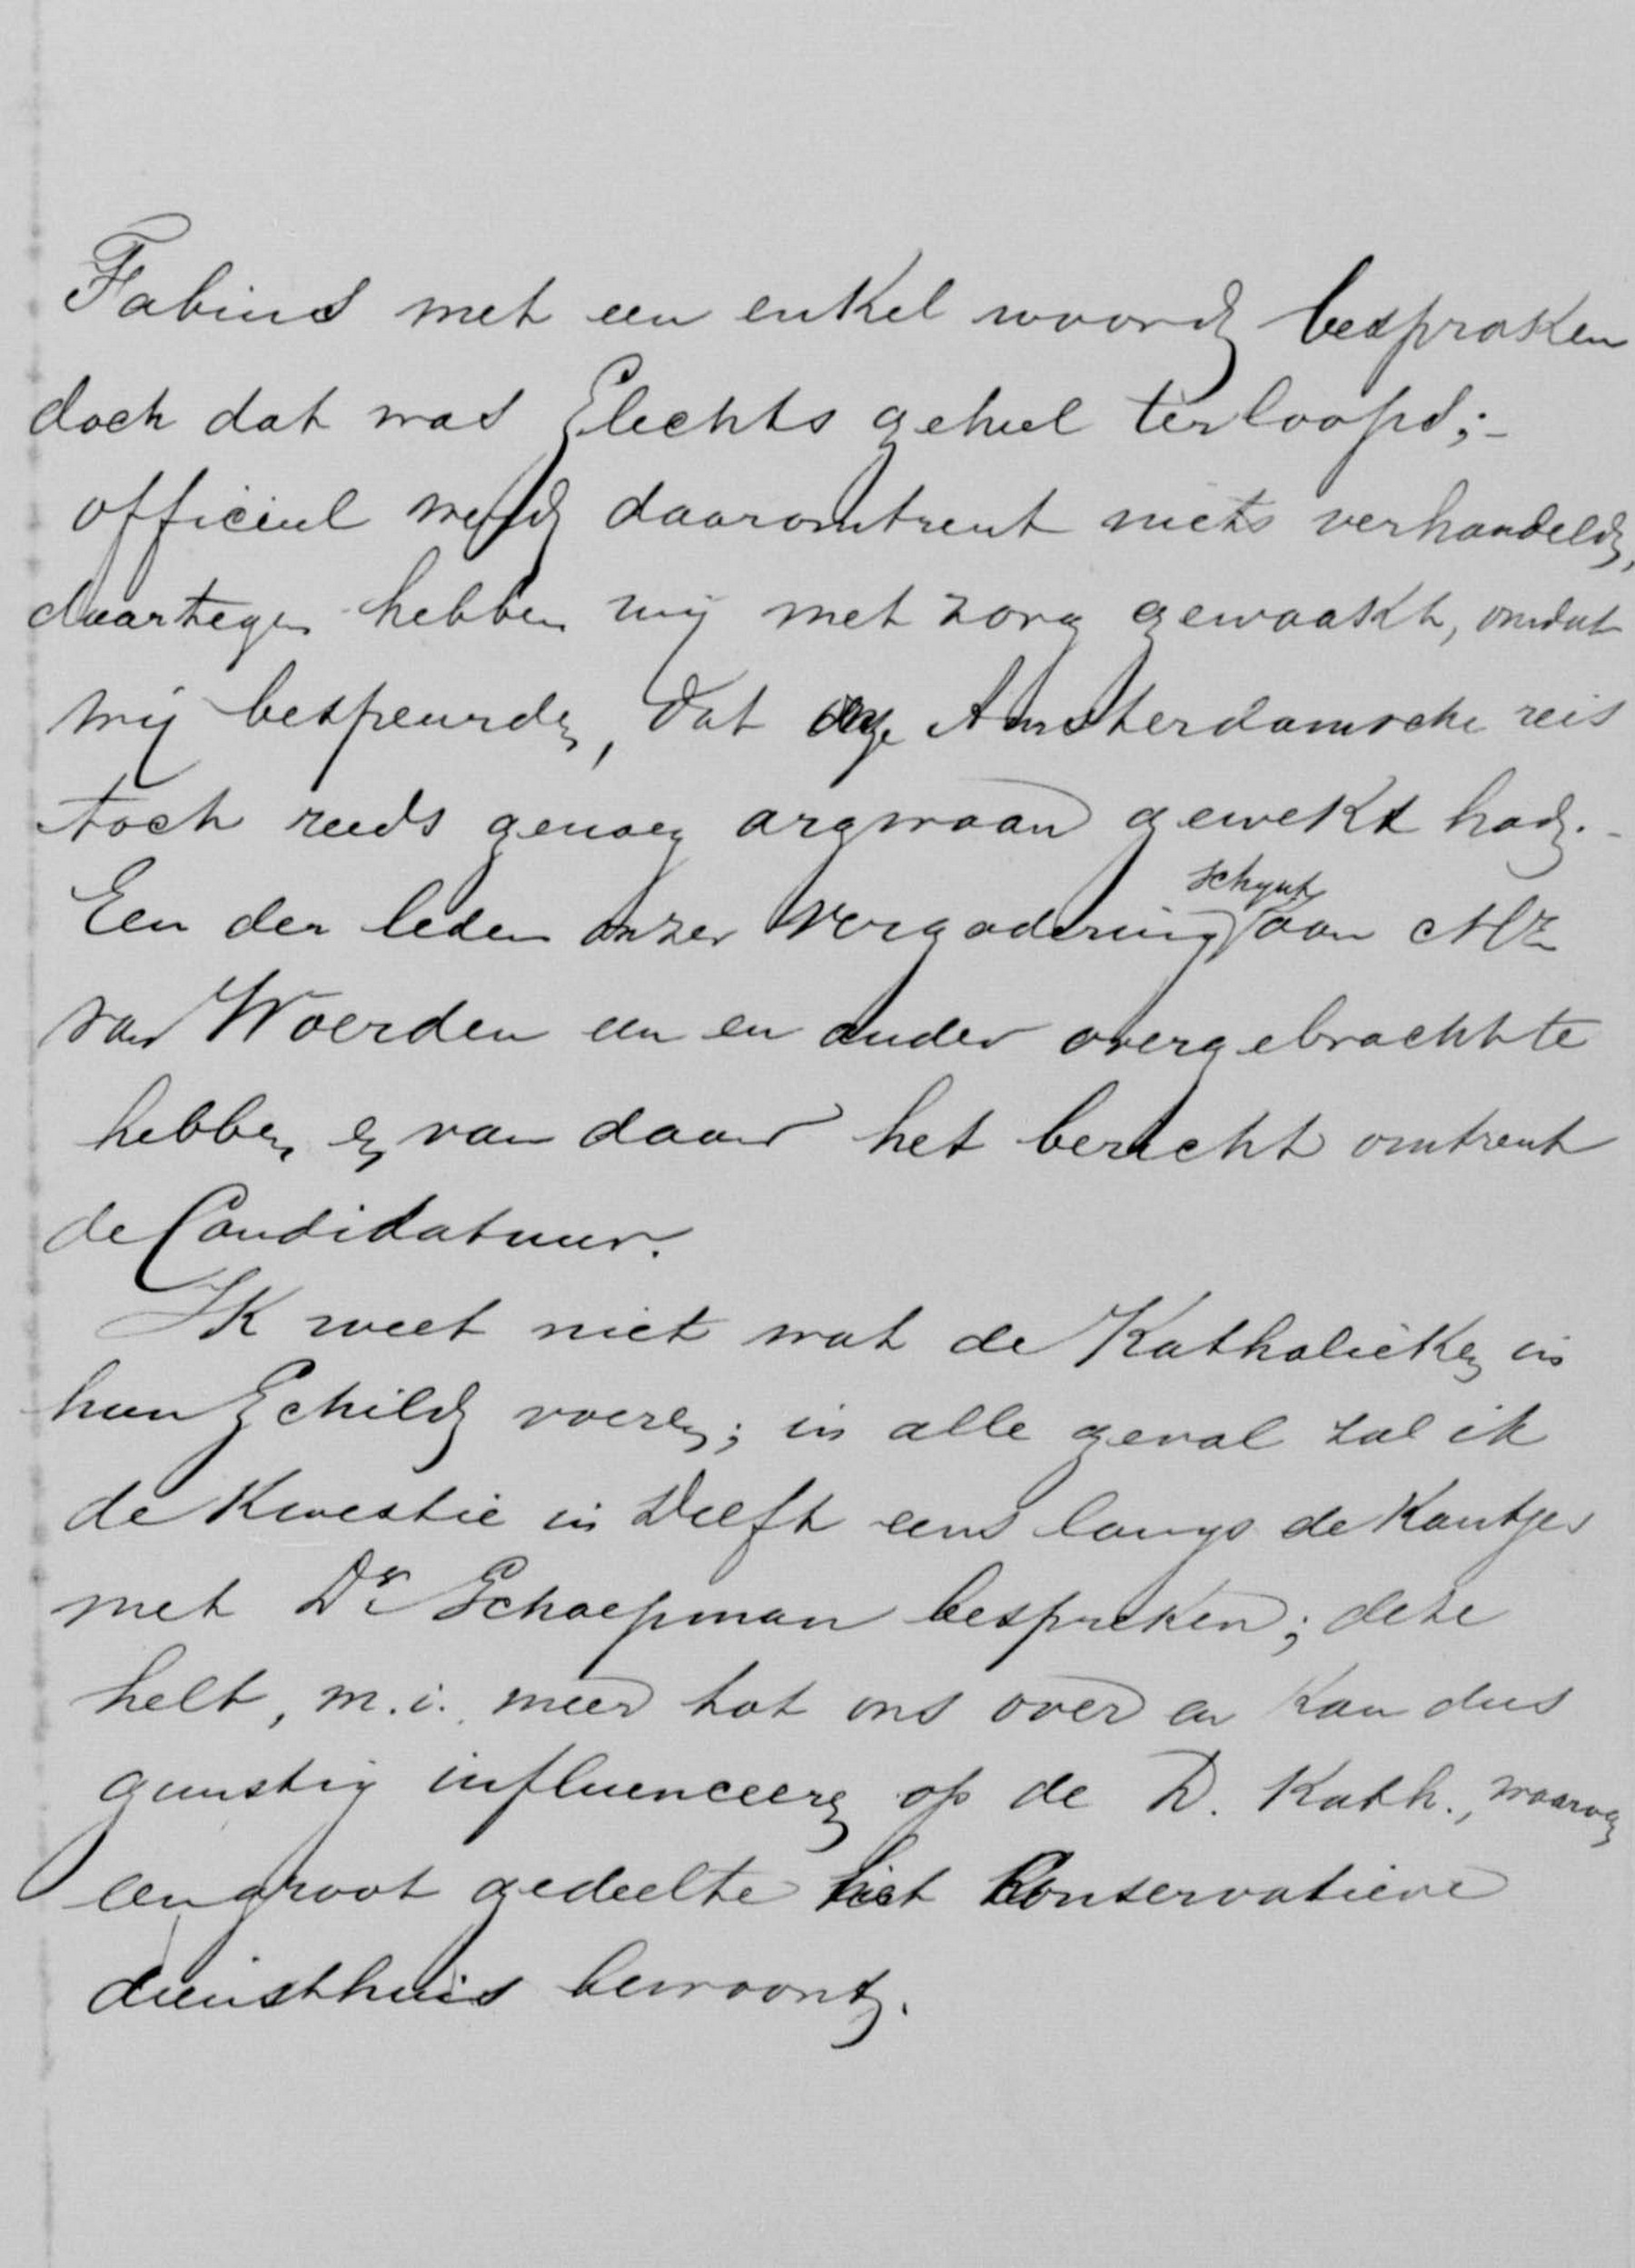 Fabius met een enkel woord besproken
doch dat was slechts geheel terloops;-
officieel werd daaromtrent niets verhandeld,
daartegen hebben wij met zorg gewaakt, omdat
wij bespeurden, dat deze Amsterdamsche reis
toch reeds genoeg argwaan gewekt had.-
Een der leden onzer Vergadering schynt aan Mr
van Woerden een en ander overgebracht te
hebben en van daar het bericht omtrent
de Candidatuur.
Ik weet niet wat de Katholieken in
hun Schild voeren; in alle geval zal ik
de Kwestie in Delft eens langs de Kantjes
met Dr Schaepman bespreken; deze
helt, m.i. meer tot ons over en Kan dus
gunstig influenceeren op de D. Kath., waarvan
een groot gedeelte het Conservatieve
diensthuis bewoont.